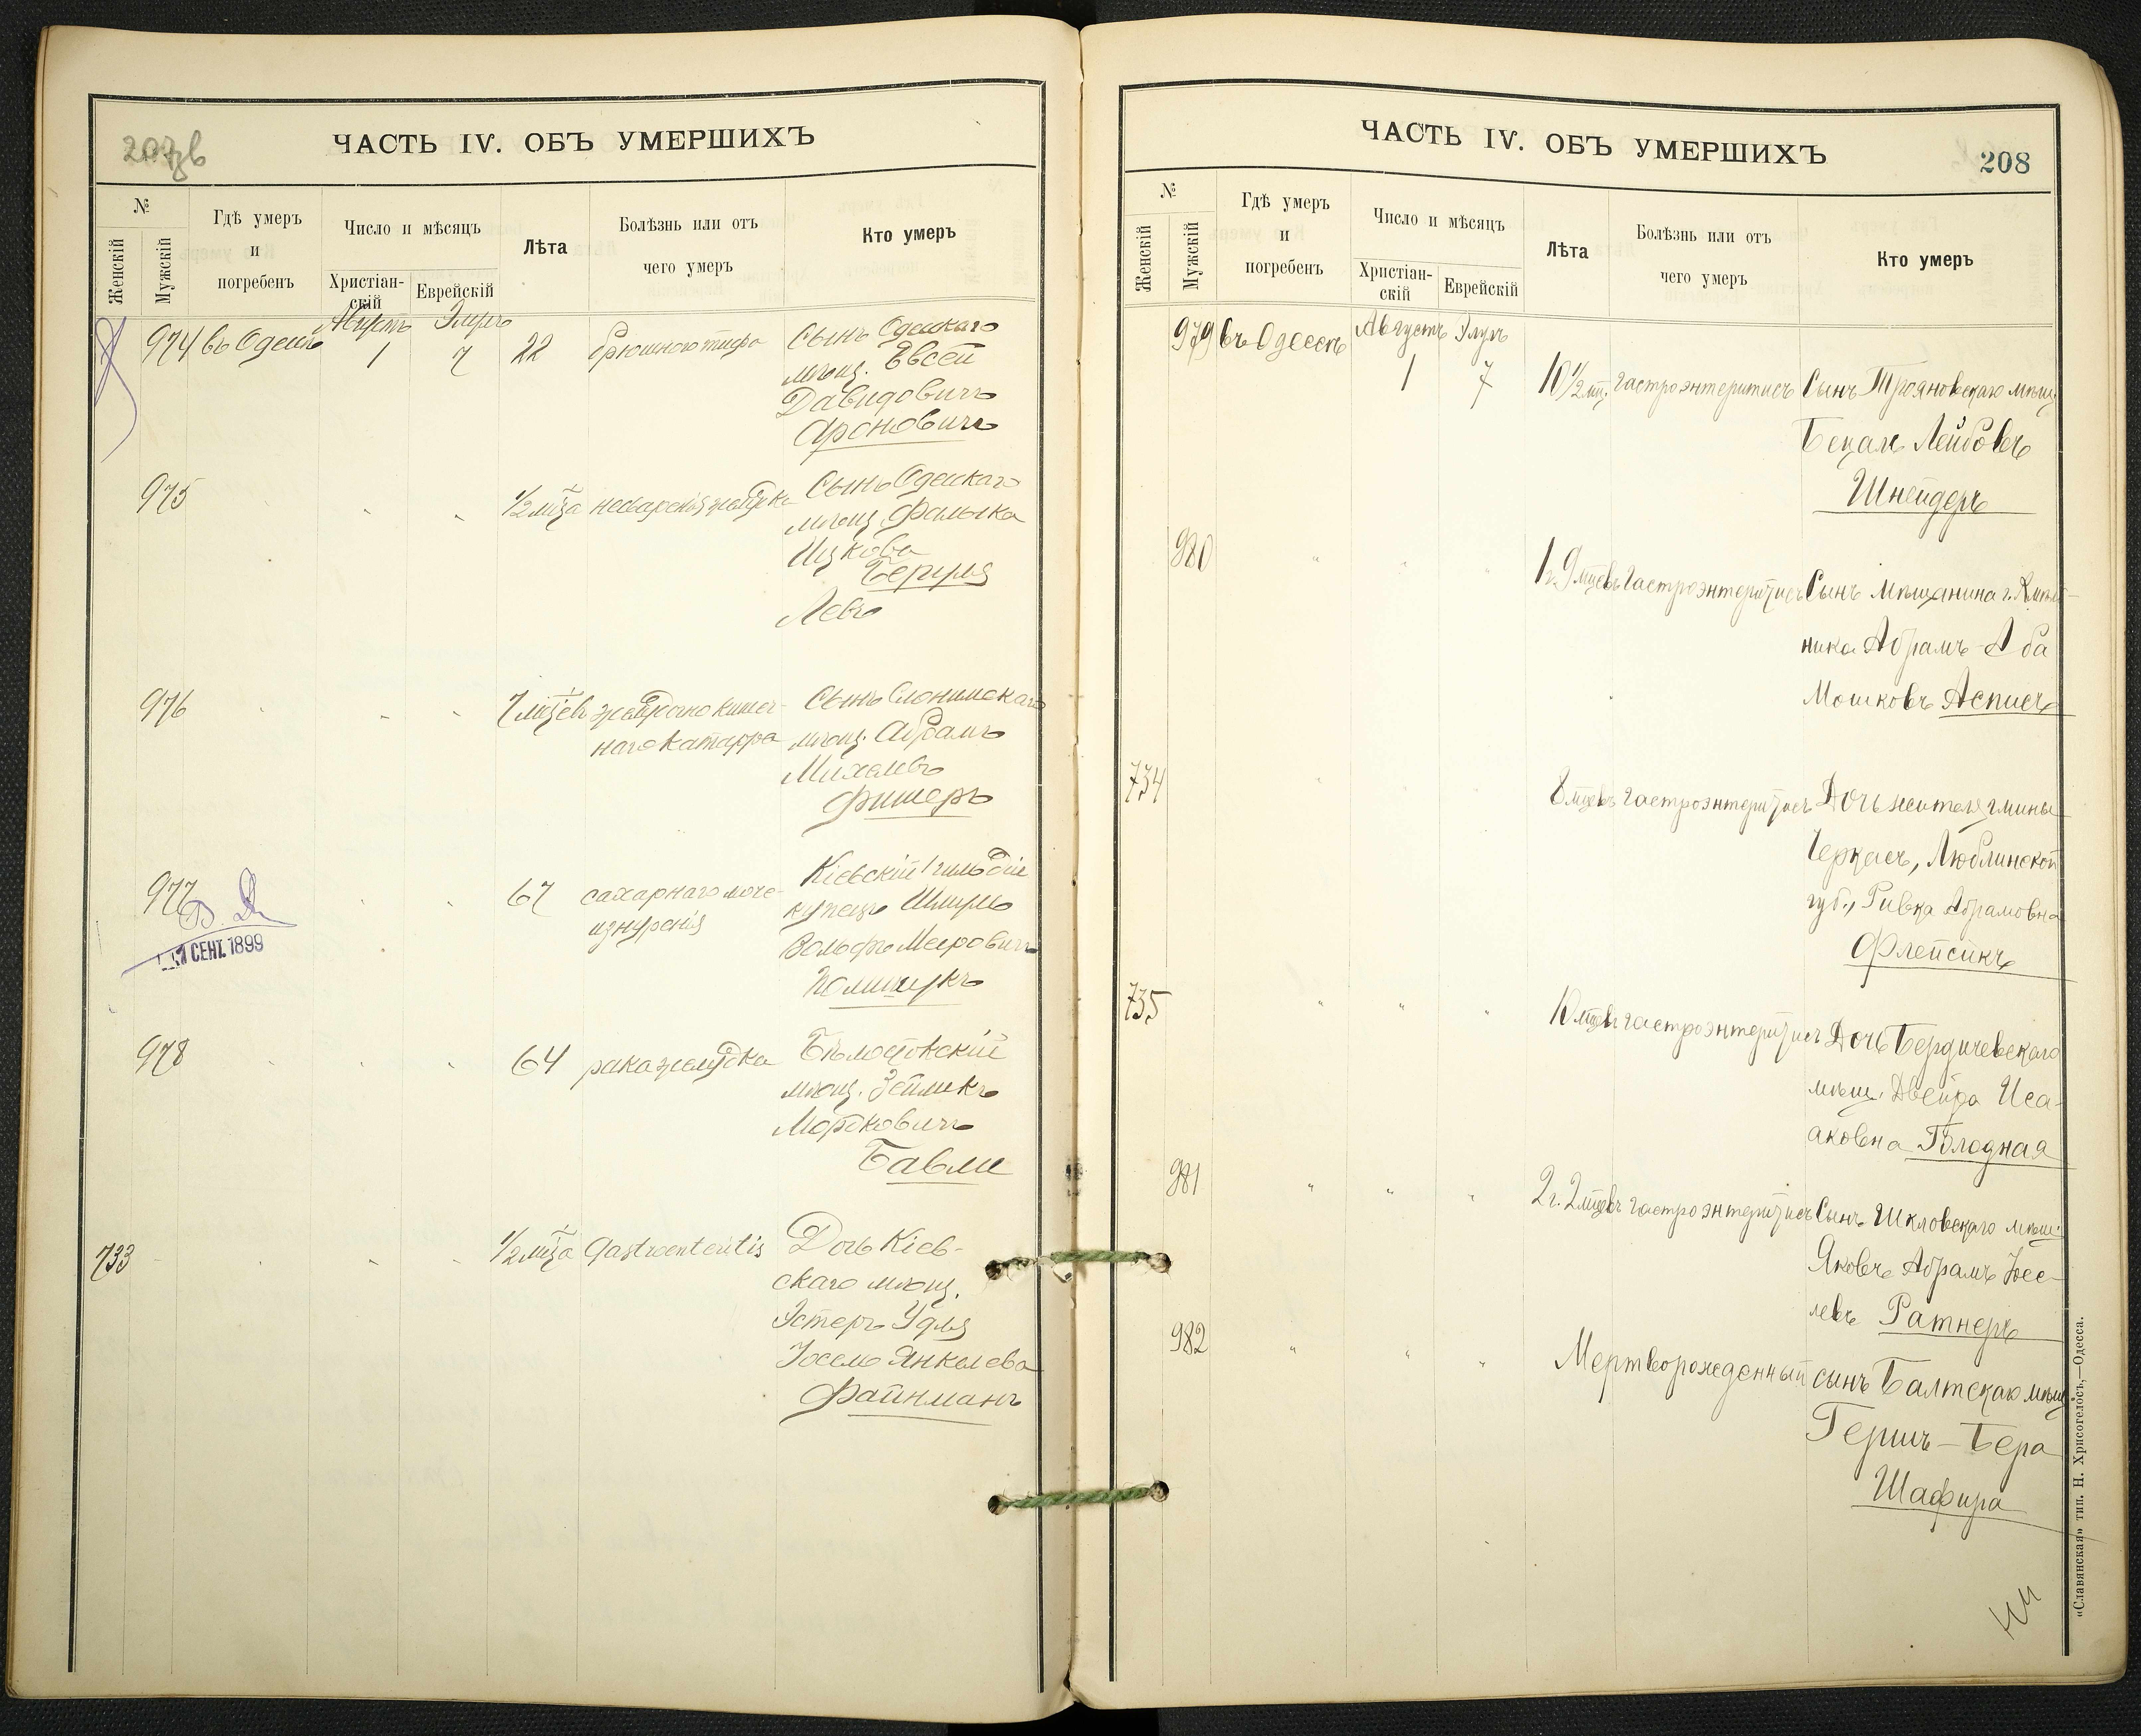 207зв
ЧАСТЬ IV. ОБЪ УМЕРШИХЪ
№
Женскій
Мужскій
Гдѣ умеръ
и
погребенъ
Число и мѣсяцъ
Христіан-
скій
Еврейскій
Лѣта
Болѣзнь или отъ
чего умеръ
Кто умеръ
Августъ Элулъ
974 въ Одессѣ 1 7 22 брюшного тифа Сынъ Одесскаго
мѣщ. Евсей
Давидовичъ
Ароновичъ
975 " " 1/2 мѣс҃ца несваренія желудка Сынъ Одесскаго
мѣщ. Фалька
Ицкова
Беруля
Левъ
976 " " " 7 мѣс҃цевъ желудочно кишеч-
наго катарра
Сынъ Слонимскаго
мѣщ. Абрамъ
Михелевъ
Фишеръ
977 " " 67 сахарнаго моче-
изнуренія
Кіевскій 1 гильдіи
купецъ Шмуль
Вольфъ Мееровичъ
Полищукъ
СЕНТ. 1899
978 " " " 64 рака желудка Бѣлостокскій
мѣщ. Зеликъ
Мордковичъ
Бавли
733 " " " 1/2 мѣс҃ца Gastroenteritis Дочь Кіев-
скаго мѣщ.
Эстеръ Удля
Іосель Янкелева
Файнманъ
ЧАСТЬ IV. ОБЪ УМЕРШИХЪ
208
№
Женскій
Мужскій
Гдѣ умеръ
и
погребенъ
Число и мѣсяцъ
Христіан-
скій
Еврейскій
Лѣта
Болѣзнь или отъ
чего умеръ
Кто умеръ
979 въ Одессѣ Августъ Элулъ
1 7 10 1/2 мц. гастроэнтеритисъ Сынъ Трояновскаго мѣщ.
Бецаль Лейбовъ
Шнейдеръ
980 " " " 1 г. 9 мцевъ гастроэнтеритисъ Сынъ мѣщанина г. Хмѣль-
ника Абрамъ-Аба
Мошковъ Асписъ
734 " 8 мцевъ гастроэнтеритисъ Дочь жителя гмины
Черкасъ, Люблинской
губ., Ривка Абрамовна
Флейсикъ
735 " " " 10 мцевъ гастроэнтеритисъ Дочь Бердичевскаго
мѣщ. Двейра Иса-
аковна Голодная
981 " " " 2 г. 2 мцевъ гастроэнтеритисъ Сынъ Шкловскаго мѣщ.
Яковъ Абрамъ Іосе-
левъ Ратнеръ
982 " " " Мертворожденный сынъ Балтскаго мѣщ.
Гершъ-Бера
Шафира
«Славянская» тип. Н. Хрисогелосъ,—Одесса.